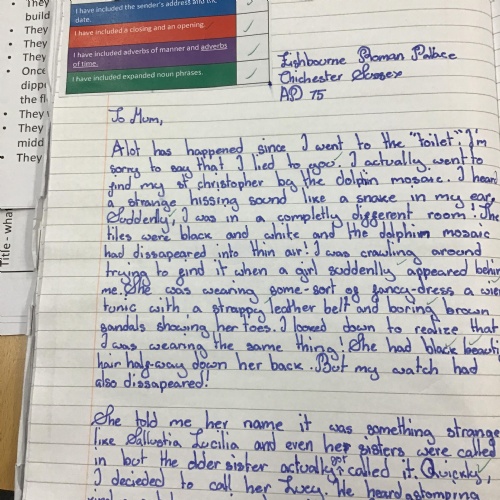 They
build
They
They
They
Once
dipp
the fl
They
They
midd
They
Title - what
I have included the sender's address and the
date.
I have included a closing and an opening.
I have included adverbs of manner and adverbs
of time.
I have included expanded noun phrases.
Fishbourne Roman Palace
Chichester Sussex
AD 75
To Mum,
Alot has happened since I went to the "toilet", I'm
sorry to say that I lied to you. I actually went to
find my st christopher by the dolphin mosaic. I heard
a strange hissing sound like a snake in my ear.
Suddenly, I was in a completly different room. The
tiles were black and white and the dolphin mosaic
had dissapeared into thin air! I was crawling around
trying to find it when a girl suddenlly appeared behin
me. She was wearing some-sort of fancy-dress a
tunic with a strappy leather belt and boring brown
sandals showing her toes. I looked down to realize that
I was wearing the same thing! She had black beauti
hair half-way down her back. But my watch had
also dissapeared!
She told me her name it was something strange
like Sallustia Lucilia and even her sisters were called
in but the older sister actually got called it. Quickly,
I decieded to call her Lucy. We heard stomping